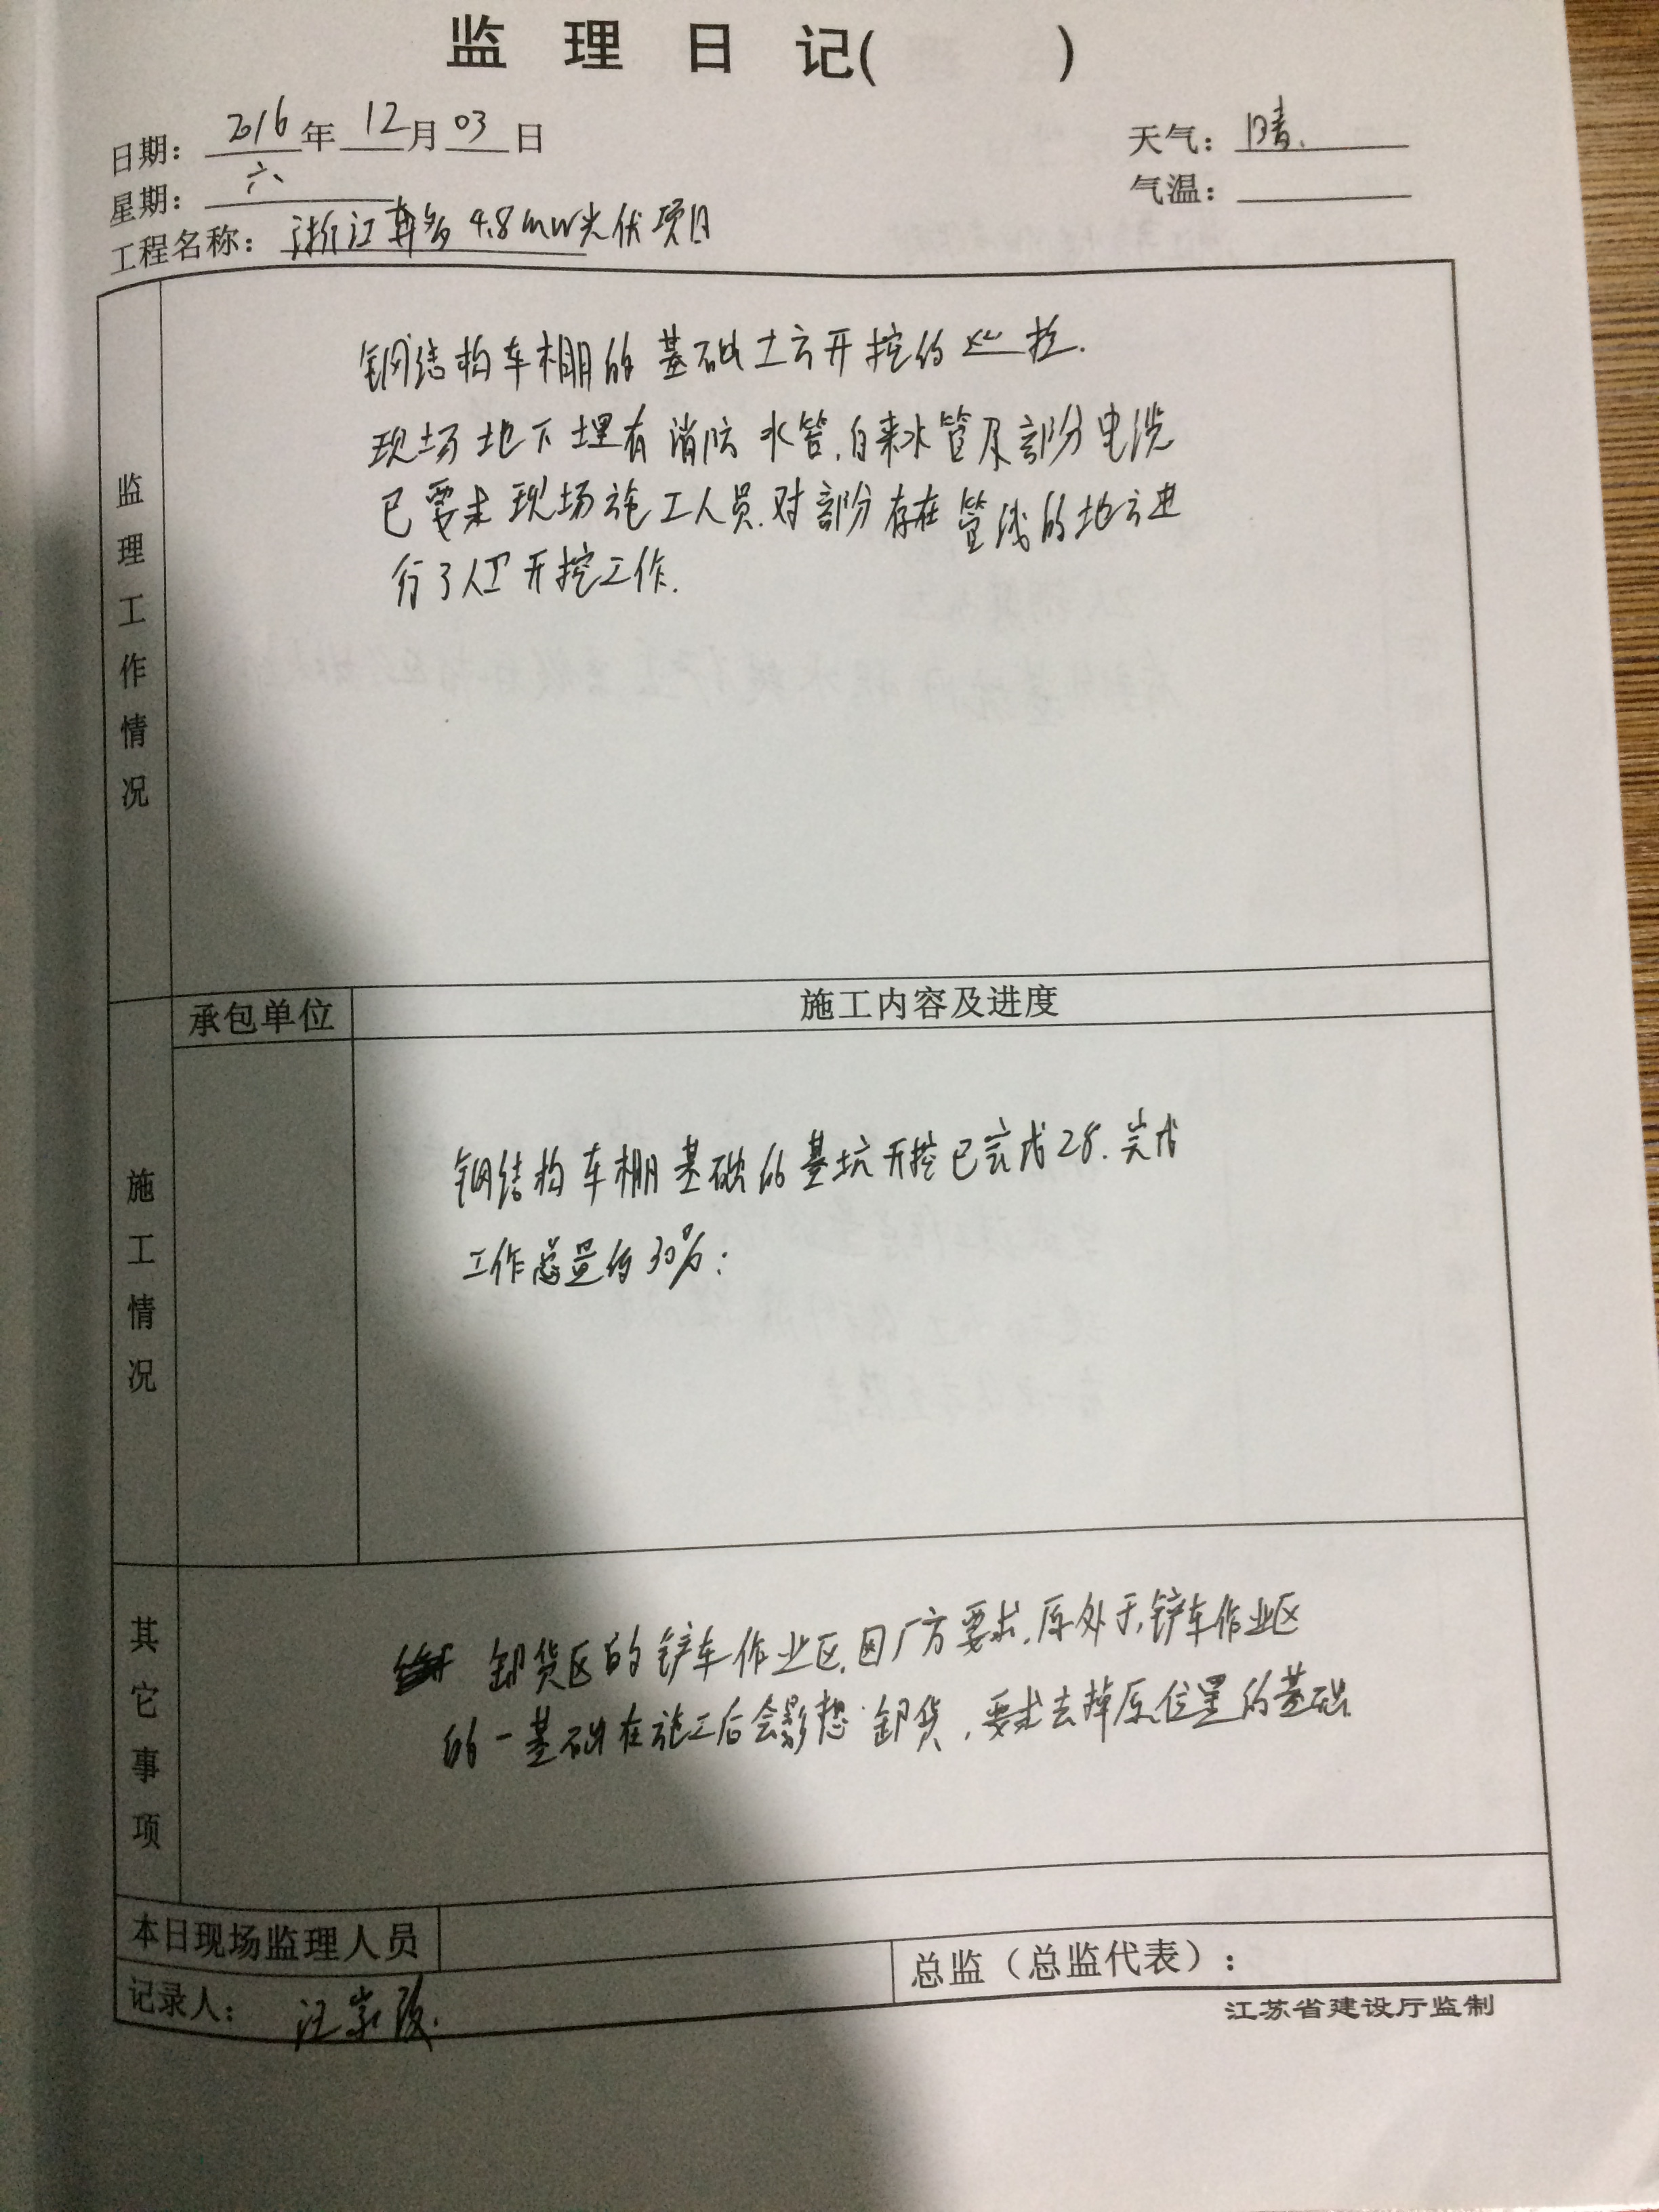 监理日记( )
日期: 2016年12月03日
天气: 晴.
星期: 六
气温:
工程名称: 浙江 4.8mw光伏项目
监理工作情况
钢结构车棚的基础土方开挖的
现场地下埋有消防水管.自来水管及部分电缆
已要求现场施工人员.对部分存在管线的地方进
行了人工开挖工作.
承包单位
施工内容及进度
施工情况
钢结构车棚基础的基坑开挖已完成28.完成
工作总量的30%:
其它事项
卸货区的铲车作业区.因厂方要求.原处于铲车作业区
的一基础在施工后会影想卸货,要求去掉原位置的基础
本日现场监理人员
总监（总监代表）:
记录人: 汪
江苏省建设厅监制